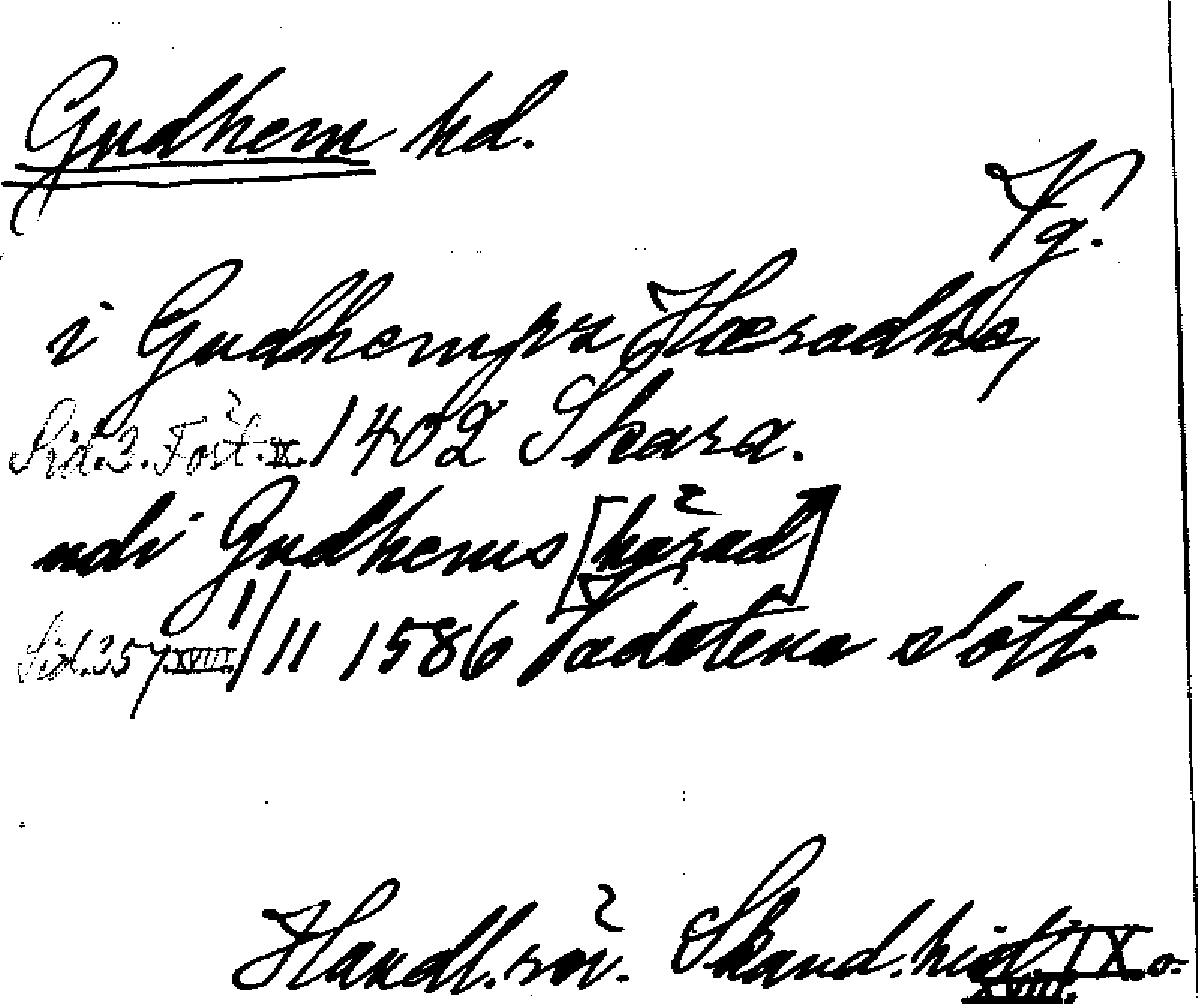 Gudhem hd.
Vg.
i Gudhempz Hæradhe,
Sid. 2. Fört. IX. 1402 Skara.
udi Gudhems [härad]
Sid. 257 XVIII. 1/11 1586 Vadstena slott.
Handl. rör. Skand. hist. IX o.
XVIII.